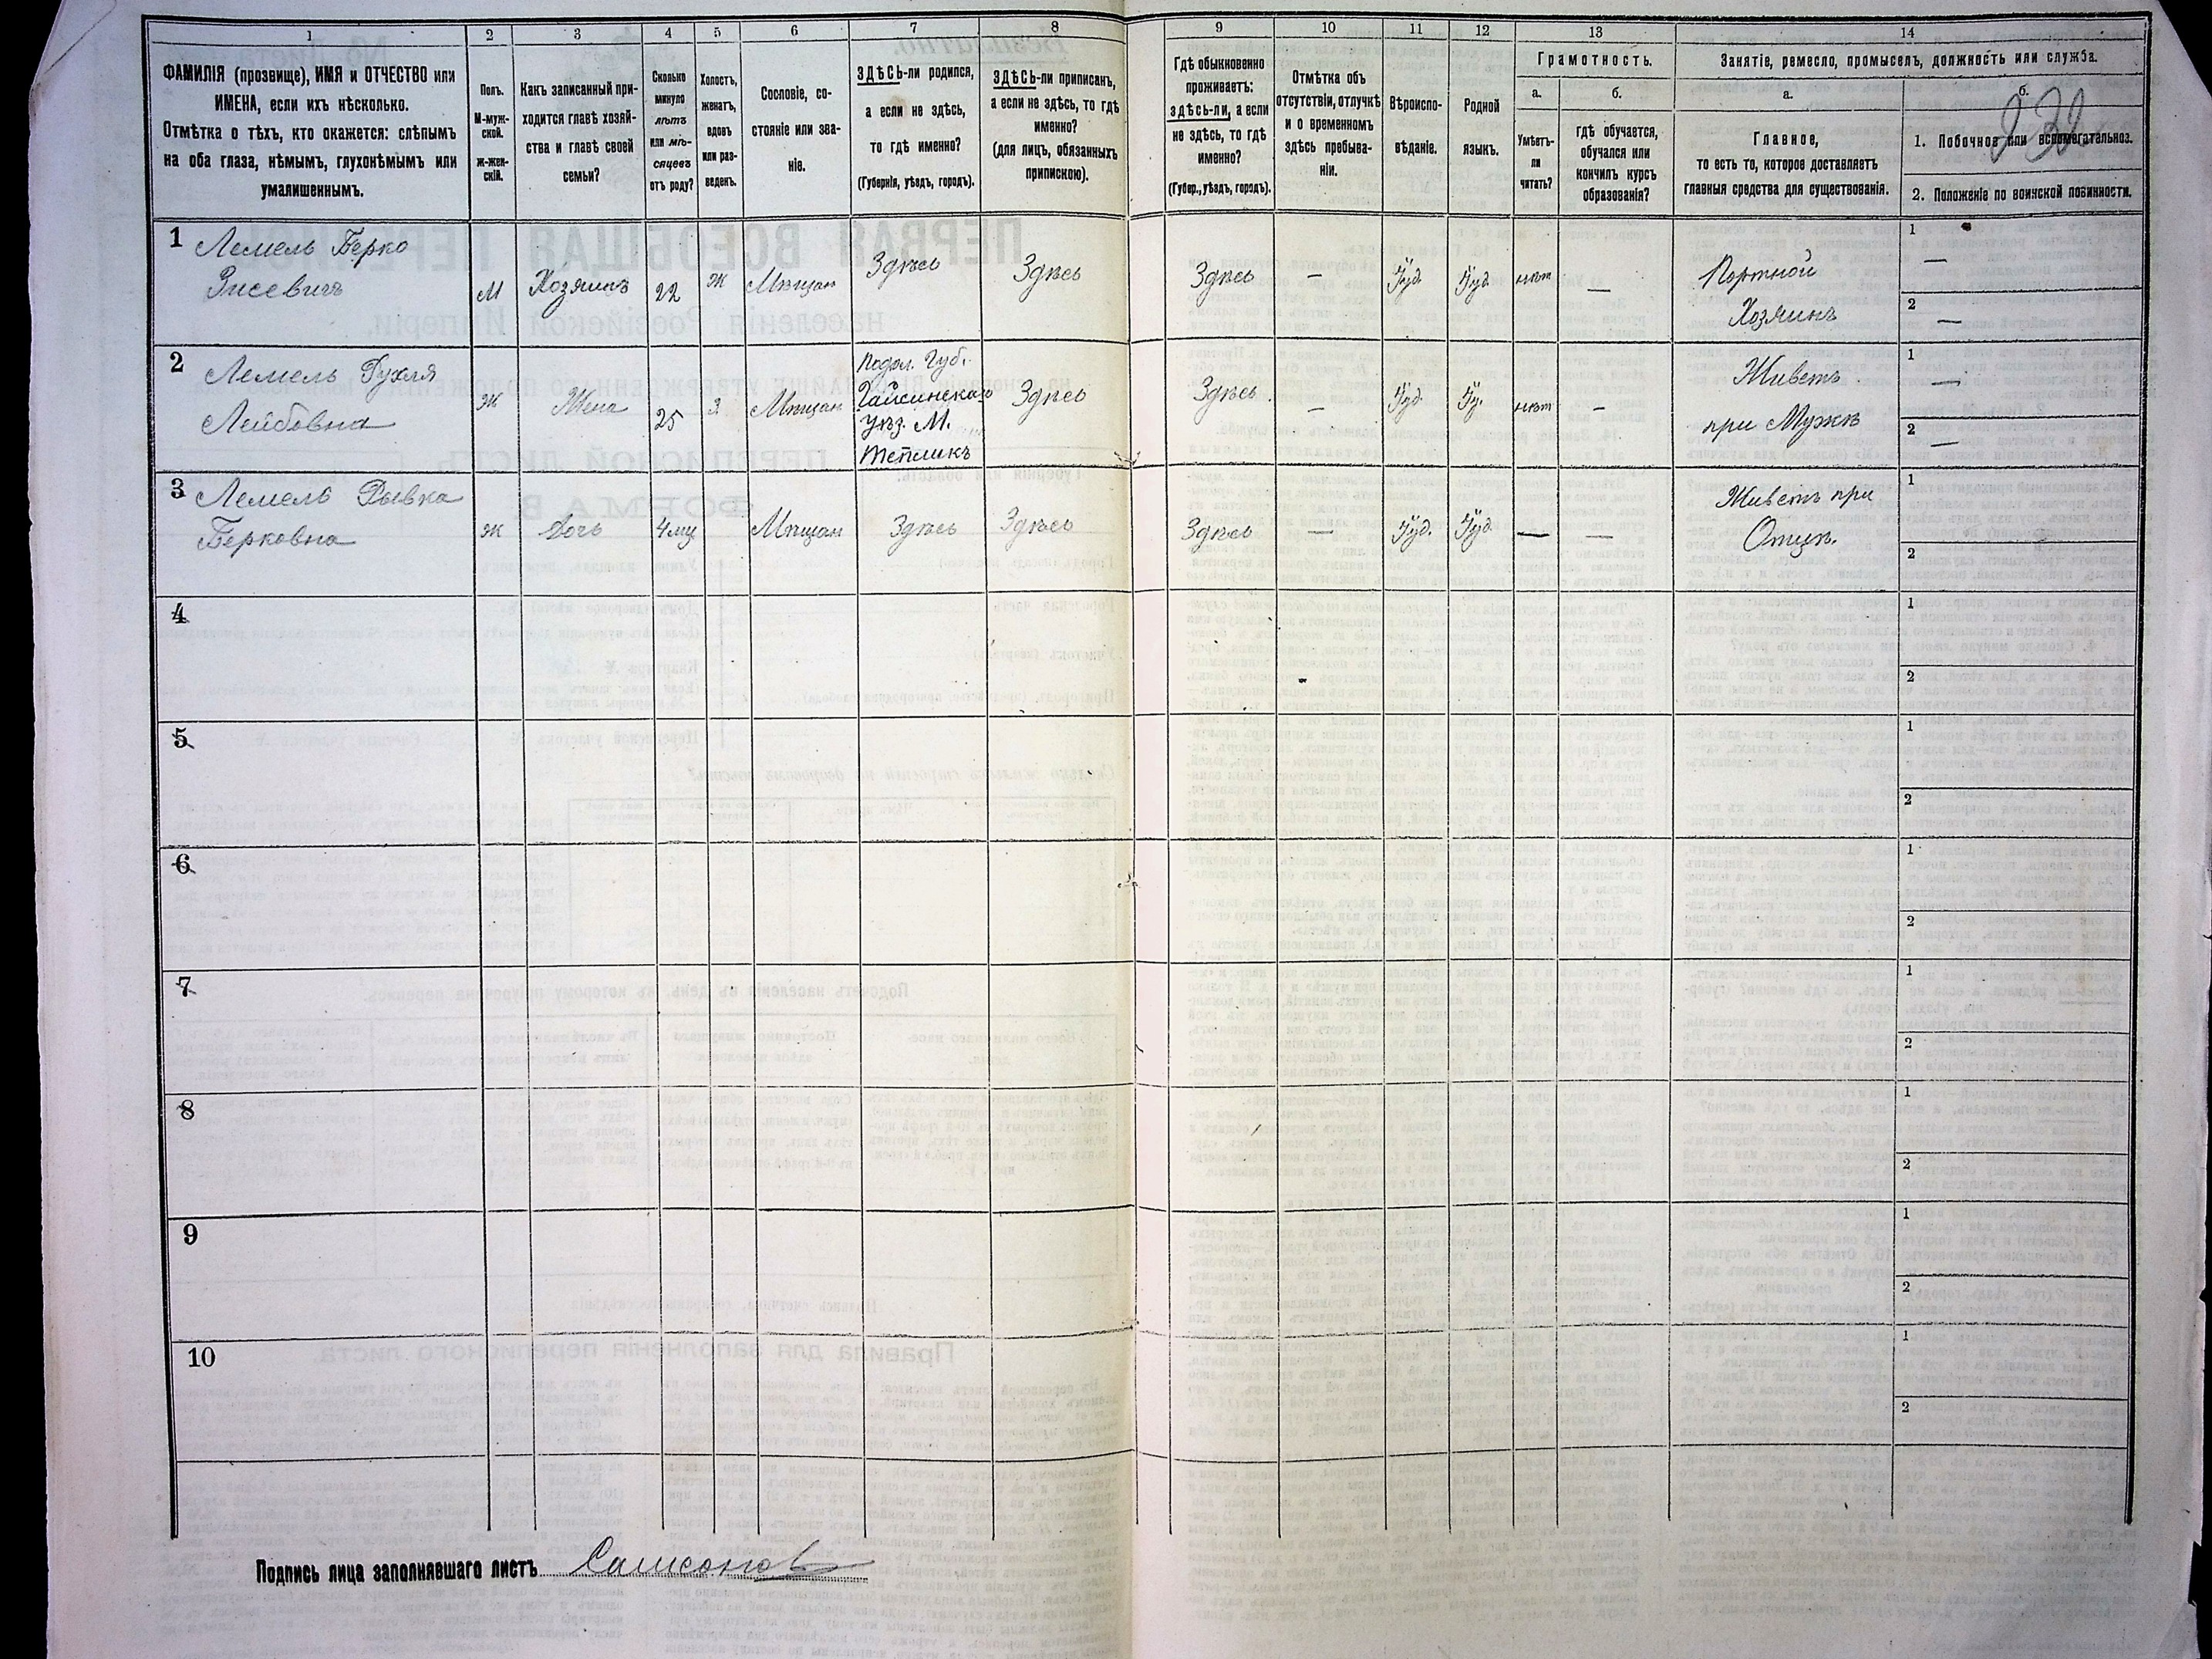 1 2 3 4 5 6 7 8 9 10 11 12 13 14
ФАМИЛІЯ (прозвище), ИМЯ и ОТЧЕСТВО или
ИМЕНА, если ихъ нѣсколько.
Отмѣтка о тѣхъ, кто окажется: слѣпымъ
на оба глаза, нѣмымъ, глухонѣмымъ или
умалишеннымъ.
Полъ.
М-муж-
ской.
ж-жен-
скій.
Какъ записанный при-
ходится главѣ хозяй-
ства и главѣ своей
семьи?
Сколько
минуло
лѣтъ
или мѣ-
сяцевъ
отъ роду?
Холостъ,
женатъ,
вдовъ
или раз-
веденъ.
Сословіе, со-
стояніе или зва-
ніе.
ЗДѢСЬ-ли родился,
а если не здѣсь,
то гдѣ именно?
(Губернія, уѣздъ, городъ).
ЗДѢСЬ-ли приписанъ,
а если не здѣсь, то гдѣ
именно?
(для лицъ, обязанныхъ
припискою).
Гдѣ обыкновенно
проживаетъ:
здѣсь-ли, а если
не здѣсь, то гдѣ
именно?
(Губер., уѣздъ, городъ).
Отмѣтка объ
отсутствіи, отлучкѣ
и о временномъ
здѣсь пребыва-
ніи.
Вѣроиспо-
вѣданіе.
Родной
языкъ.
Грамотность.
а.
Умѣетъ-
ли
читать?
б.
гдѣ обучается,
обучался или
кончилъ курсъ
образованія?
Занятіе, ремесло, промыселъ, должность или служба.
а.
Главное,
то есть то, которое доставляетъ
главныя средства для существованія.
б.
1. Побочное или вспомогательное.
2. Положеніе по воинской повинности.
1 Лемель Берко
М Хозяинъ 22 Ж Мѣщан Здѣсь Здѣсь Здѣсь — Іуд. Іуд. нѣт — Портной
Хозяинъ
1 —
2 —
2 Лемель Рухля
Лейбовна
Ж Жена 25 З Мѣщан
Подол. Губ.
Гайсинскаго
Уѣз. М.
Тепликъ
Здѣсь Здѣсь — Іуд. Іу. нѣт — Живетъ
при Мужѣ
1 —
2 —
3 Лемель Рывка
Берковна
Ж Дочь 4мц Мѣщан Здѣсь Здѣсь Здѣсь — Іуд. Іуд. — — Живетъ при
Отцѣ.
1
2
4 1
2
5 1
2
6 1
2
7 1
2
8 1
2
9 1
2
10 1
2
Подпись лица заполнявшаго листъ Самсонов